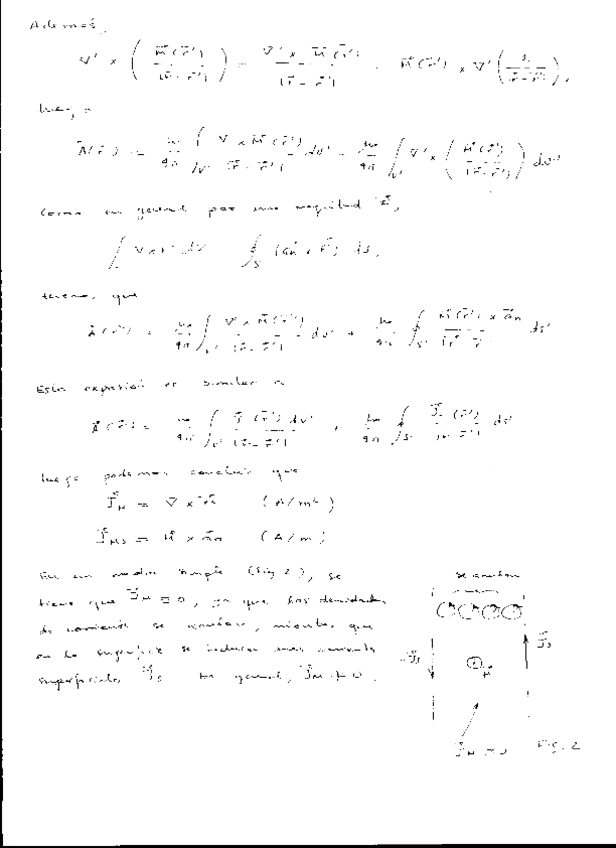 Además,
∇' × ( M̄(r̄') / |r̄ - r̄'| ) = ∇' × M̄(r̄') / |r̄ - r̄'| - M̄(r̄') × ∇' ( 1 / |r̄ - r̄'| ),
luego
Ā(r̄) = μ₀/4π ∫_v' ∇' × M̄(r̄') / |r̄ - r̄'| dv' - μ₀/4π ∫_v' ∇' × ( M̄(r̄') / |r̄ - r̄'| ) dv'
Como en general para una magnitud F̄,
∫ ∇ × F̄ dv ∮_S (ān × F̄) ds,
tenemos que
Ā(r̄) = μ₀/4π ∫_v' ∇' × M̄(r̄') / |r̄ - r̄'| dv' + μ₀/4π ∮_S' M̄(r̄') × ān / |r̄ - r̄'| ds'
Esta expresión es similar a
Ā(r̄) = μ₀/4π ∫_v' J̄(r̄') dv' / |r̄ - r̄'| + μ₀/4π ∮_S' J̄(r̄') / |r̄ - r̄'| ds'
luego podemos concluir que
J̄_M = ∇ × M̄ (A/m²)
J̄_MS = M̄ × ān (A/m)
En un medio simple (Fig 2), se
tiene que J̄_M = 0, ya que las densidades
de corriente se anulan, mientras que
en la superficie se inducen unas corrientes
superficiales J̄_S En general, J̄_M ≠ 0.
se anulan
J̄_S
J̄_S
M̄
J̄_M = 0 Fig. 2